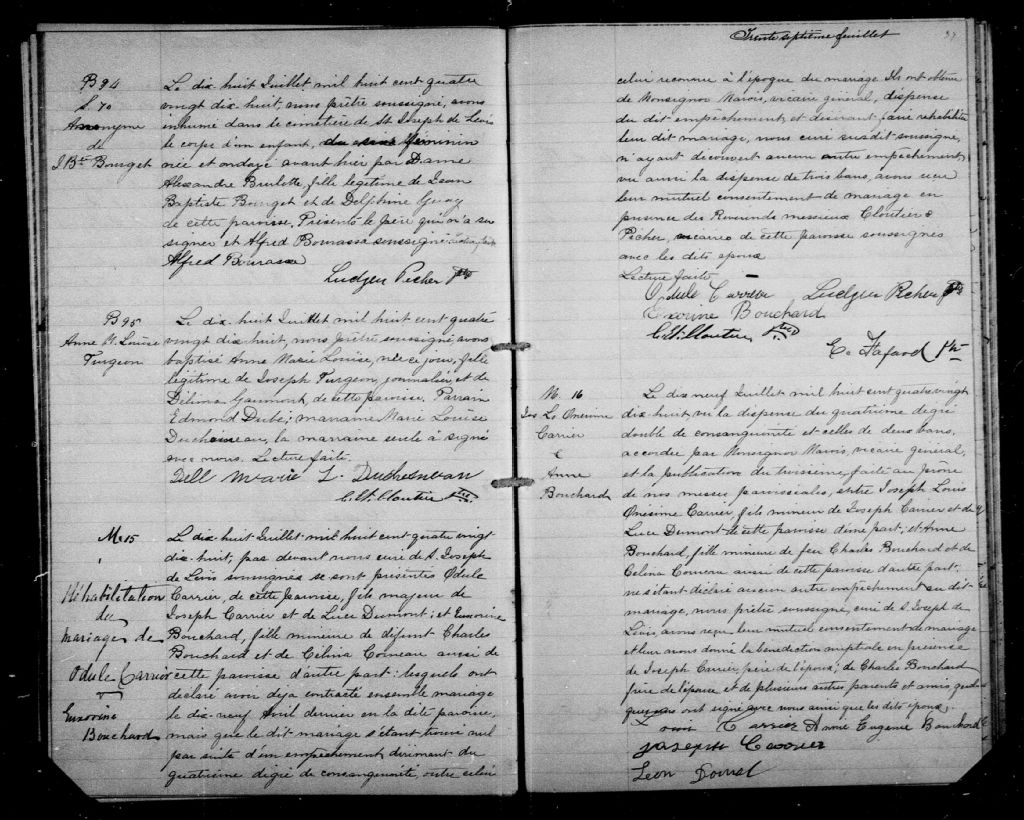 B 94
S. 70
Anonyme
de
J. Bte Bourget
Le dix huit Juillet mil huit cent quatre
vingt dix huit, nous prêtre soussigné, avons
inhumé dans le cimetière de St Joseph de Lévis
le corps d'un enfant, du sexe féminin
née et ondoyé avant hier par Dame
Alexandre Brulotte, fille legitime de Jean
Baptiste Bourget et de Delphine Guay
de cette paroisse. Présents le père qui n'a su
signer et Alfred Bourassa soussigné. Lecture faite
Alfred Bourassa
Ludger Picher Ptre
B 95
Anne M. Louise
Turgeon
Le dix huit Juillet mil huit cent quatre
vingt dix huit, nous prêtre soussigné avons
baptisé Anne Marie Louise, née ce jour, fille
légitime de Joseph Turgeon, journalier, et de
Délima Gaumont, de cette paroisse. Parrain
Edmond Dubé; marraine Marie Louise
Duchesneau, la marraine seule à signé
avec nous. Lecture faite.
Dell Marie L. Duchesneau
C. H. Cloutier Ptre
M. 15
Réhabilitation
du
mariage de
Odule Carrier
Euxorine
Bouchard
Le dix huit Juillet mil huit cent quatre vingt
dix huit, par devant nous curé de S. Joseph
de Lévis soussignés se sont présentés Odule
Carrier, de cette paroisse, fils majeur de
Joseph Carrier et de Luce Dumont; et Euxorine
Bouchard, fille mineure de défunt Charles
Bouchard et de Célina Comeau aussi de
cette paroisse d'autre part: lesquels ont
declaré avoir déjà contracté ensemble mariage
le dix-neuf Avril dernier en la dite paroisse,
mais que le dit mariage s'étant trouvé nul
par suite d'un empêchement dirimant du
quatrième degré de consanguinité, outre celui
Trente septième feuillet
37
celui reconnu à l'époque du mariage. Ils ont obtenu
de Monsignor Marois, vicaire général, dispense
du dit empêchement, et desirant faire réhabiliter
leur dit mariage, nous curé susdit soussigné,
n'ayant découvert aucun autre empêchement
vu aussi la dispense de trois bans, avons reçu
leur mutuel consentement de mariage en
présence des Reverends messieurs Cloutier &
Picher, vicaires de cette paroisse soussignés
avec les dits époux
Lecture faite
Odule Carrier Ludger Picher Ptre
Euxorine Bouchard
C. H. Cloutier Ptre
E. Fafard Ptre
M. 16
Jos Ls Onesime
Carrier
&
Anne
Bouchard
Le dix neuf Juillet mil huit cent quatre vingt
dix huit, vu la dispense du quatrième degré
double de consanguinité et celles de deux bans,
accordée par Monsignor Marois, vicaire général,
et la publication du troisième, faite au prone
de nos messes paroissiales, entre Joseph Louis
Onésime Carrier, fils mineur de Joseph Carrier et de
Luce Dumont de cette paroisse d'une part; et Anne
Bouchard, fille mineure de feu Charles Bouchard et de
Célina Comeau aussi de cette paroisse d'autre part;
ne s'étant déclaré aucun autre empêchement au dit
mariage, nous prêtre soussigné, curé de S. Joseph de
Lévis, avons reçu leur mutuel consentement de mariage
et leur avons donné la bénédiction nuptiale en présence
de Joseph Carrier, père de l'époux; de Charles Bouchard
frère de l'épouse, et de plusieurs autres parents et amis quel-
ques uns ont signé avec nous ainsi que les dits époux.
Louis Carrier Anne Eugenie Bouchard
Joseph Carrier
Leon